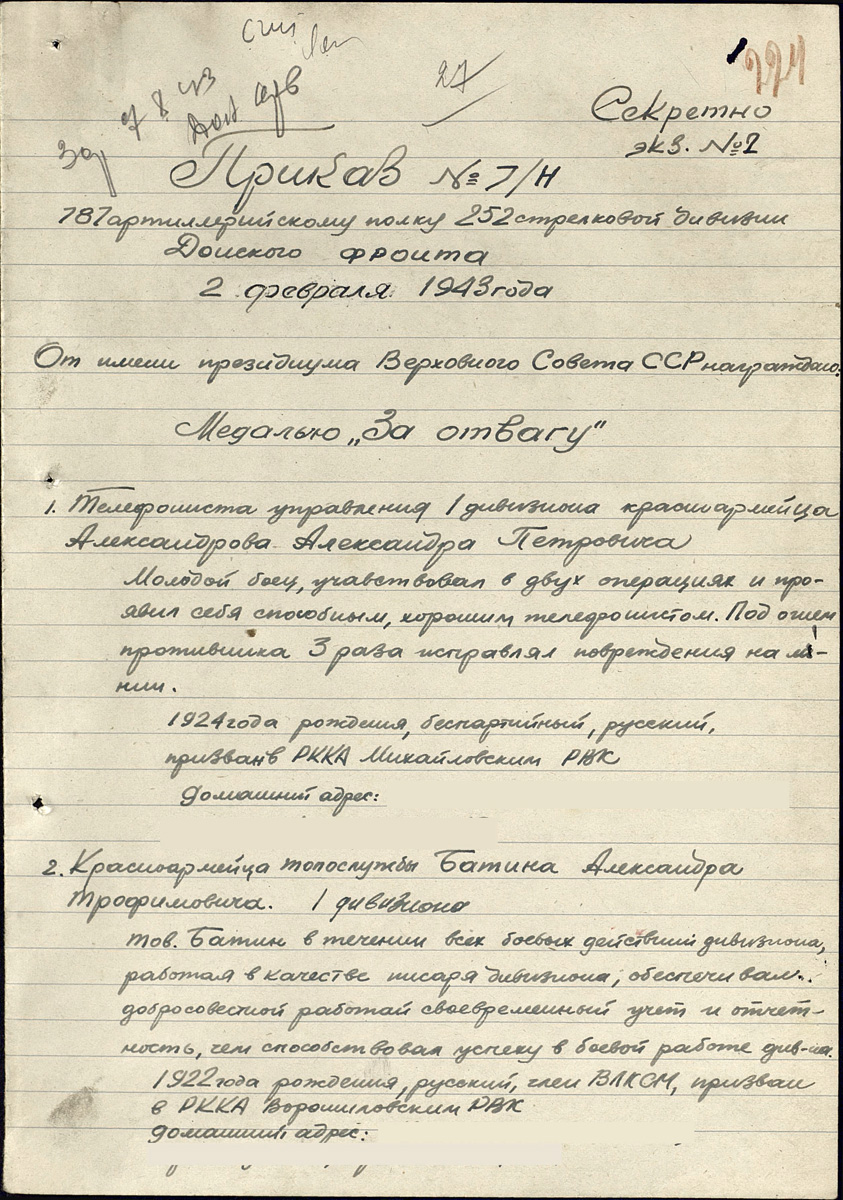 27
224
Секретно
экз. №2
Приказ № 7/Н
787 артиллерийскому полку 252 стрелковой дивизии
Донского фронта
2 февраля 1943 года
От имени президиума Верховного Совета СССР награждаю:
Медалью „За отвагу"
1. Телефониста управления 1 дивизиона красноармейца
Александрова Александра Петровича
Молодой боец, учавствовал в двух операциях и про-
явил себя способным, хорошим телефонистом. Под огнем
противника 3 раза исправлял повреждения на ли-
нии.
1924 года рождения, беспартийный, русский,
призван в РККА Михайловским РВК
Домашний адрес:
2. Красноармейца топослужбы Батина Александра
Трофимовича. 1 дивизиона
тов. Батин в течении всех боевых действий дивизиона,
работая в качестве писаря дивизиона, обеспечивал
добросовестной работай своевременный учет и отчет-
ность, чем способствовал успеху в боевой работе див-на.
1922 года рождения, русский, член ВЛКСМ, призван
в РККА Ворошиловским РВК
Домашний адрес: